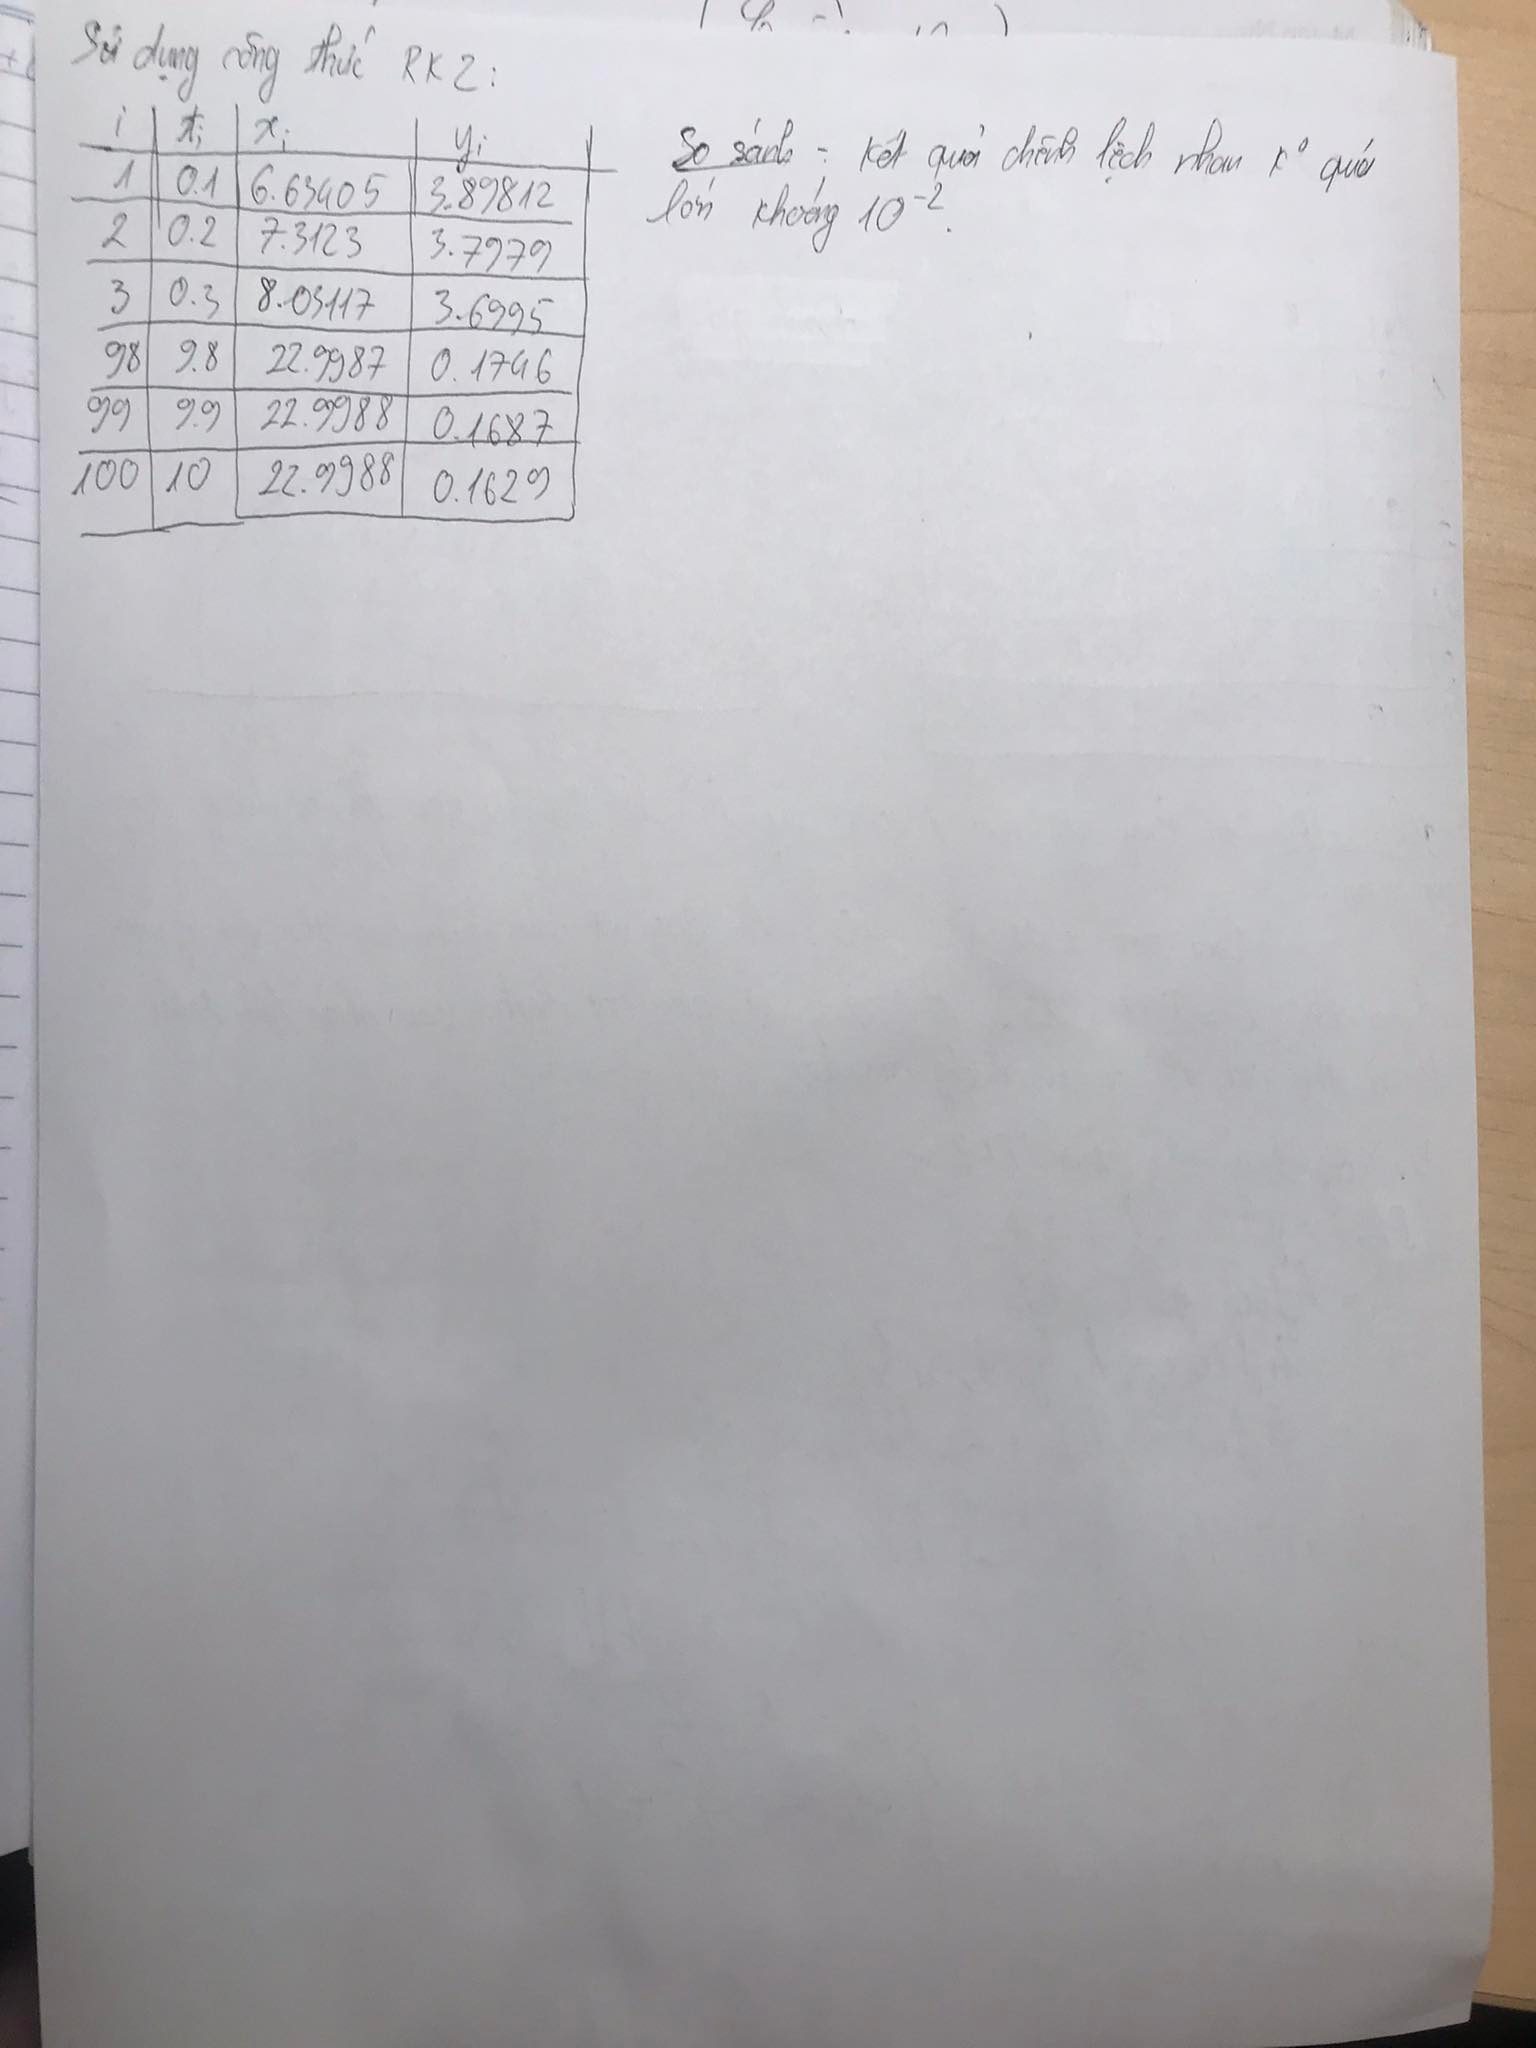 Sử dụng công thức RK2:
i | ti | xi | yi
1 | 0.1 | 6.63405 | 3.89812
2 | 0.2 | 7.3123 | 3.7979
3 | 0.3 | 8.03117 | 3.6995
98 | 9.8 | 22.9987 | 0.1746
99 | 9.9 | 22.9988 | 0.1687
100 | 10 | 22.9988 | 0.1629
So sánh: Kết quả chênh lệch nhau ko quá
lớn khoảng 10^-2.